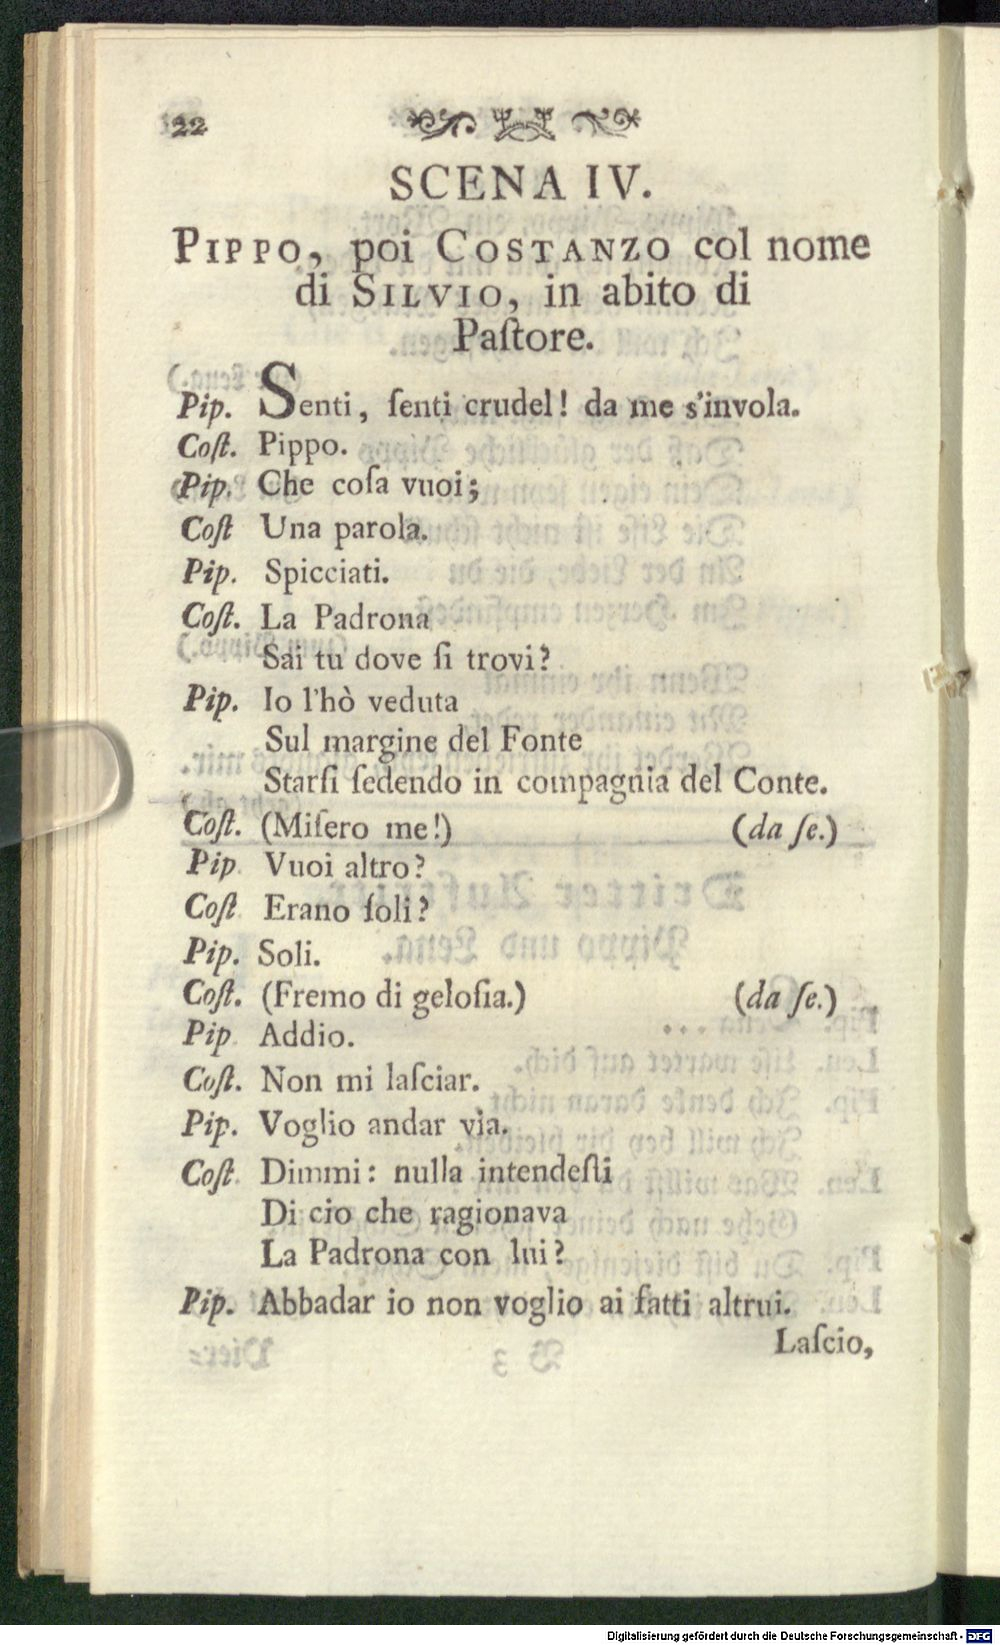 22
SCENA IV.
PIPPO, poi COSTANZO col nome
di SILVIO, in abito di
Paſtore.
Pip. Senti, ſenti crudel! da me s'invola.
Coſt. Pippo.
Pip. Che coſa vuoi;
Coſt Una parola.
Pip. Spicciati.
Coſt. La Padrona
Sai tu dove ſi trovi?
Pip. Io l'hò veduta
Sul margine del Fonte
Starſi ſedendo in compagnia del Conte.
Coſt. (Miſero me!) (da ſe.)
Pip Vuoi altro?
Coſt Erano ſoli?
Pip. Soli.
Coſt. (Fremo di geloſia.) (da ſe.)
Pip Addio.
Coſt. Non mi laſciar.
Pip. Voglio andar via.
Coſt Dimmi: nulla intendeſti
Di cio che ragionava
La Padrona con lui?
Pip. Abbadar io non voglio ai fatti altrui.
Laſcio,
Digitalisierung gefördert durch die Deutsche Forschungsgemeinschaft - DFG